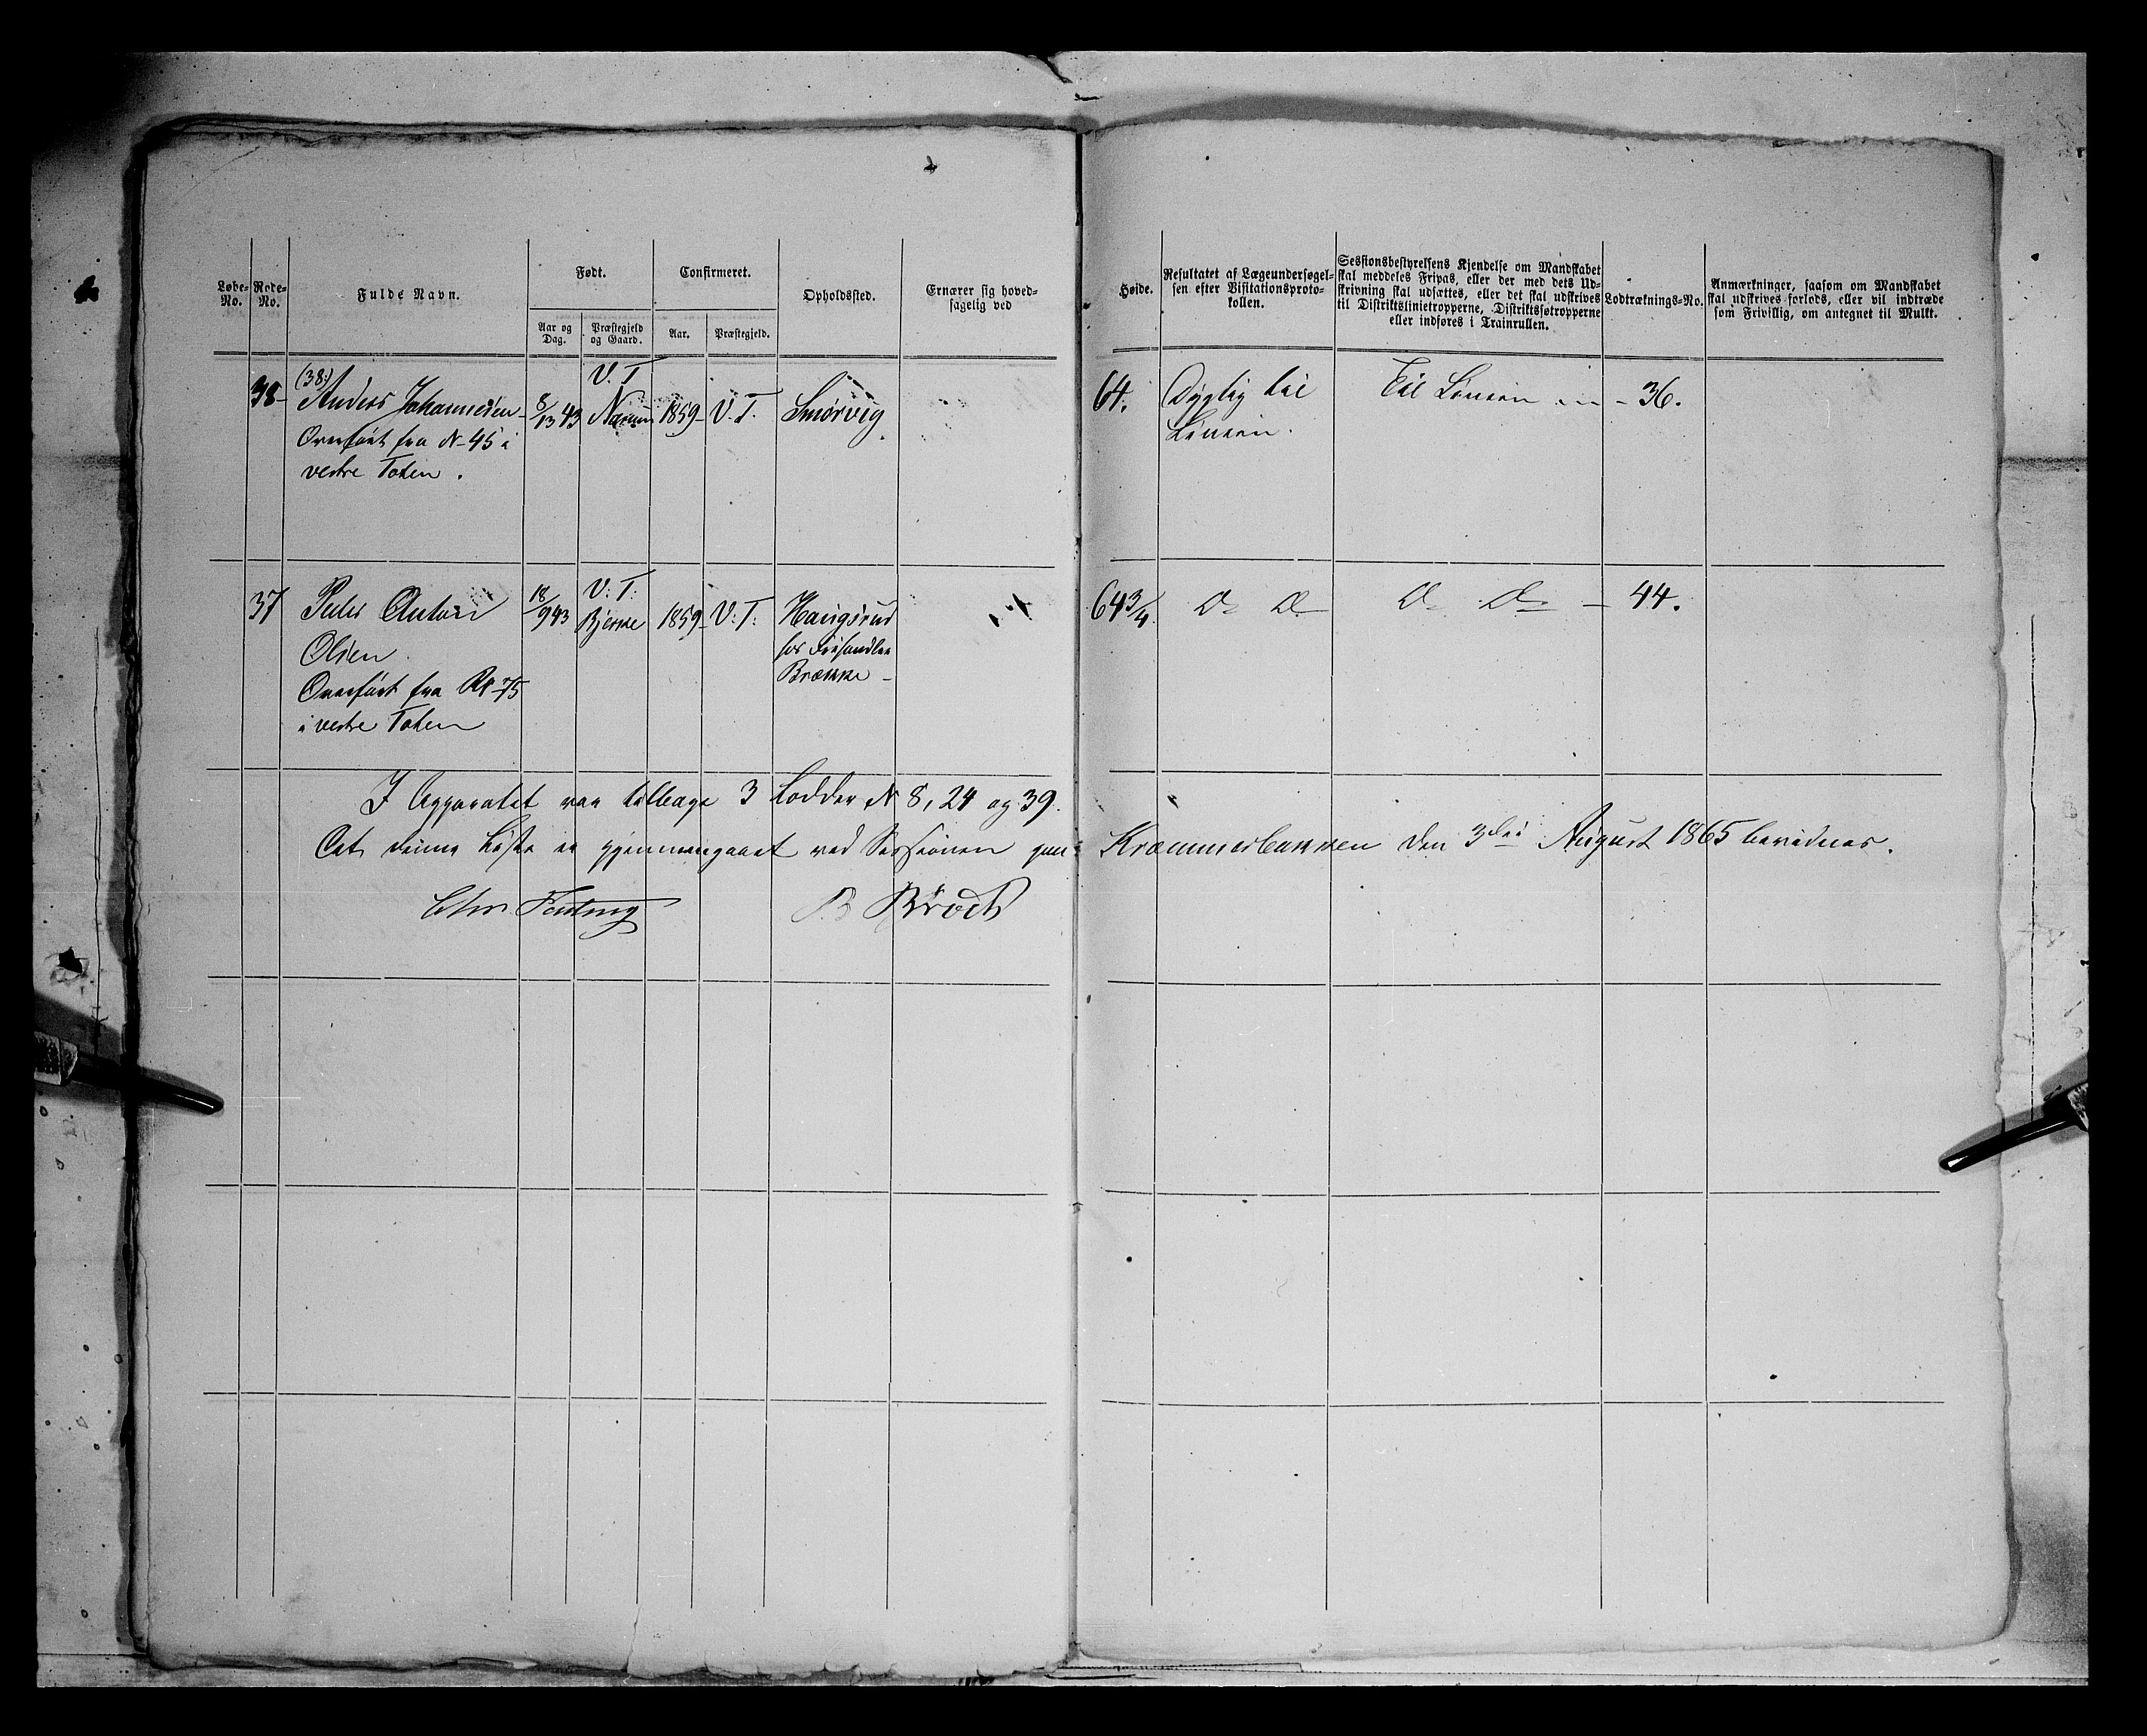 Løbe-No.
Rode-No.
Fulde Navn.
Født.
Aar og Dag.
Præstegjeld og Gaard.
Confirmeret.
Aar.
Præstegjeld.
Opholdssted.
Ernærer sig hovedsagelig ved
Høide.
Resultatet af Lægeundersøgelsen efter Visitationsprotokollen.
Sessionsbestyrelsens Kjendelse om Mandskabet
skal meddeles Fripas, eller der med dets Ud-
skrivning skal udsættes, eller det skal udskrives
til Distriktslinietropperne, Distriktsfotropperne
eller indføres i Trainrullen.
Lodtræknings-No.
Anmærkninger, saasom om Mandskabet
skal udskrives forlods, eller vil indtræde
som Frivillig, om antegnet til Mulkt.
(38:) V. T
38- Anders Johannesen - 8/ 43 1859- V. T. Smørvig 64. Dygtig til Til Linien - 36.
Overført fra N- 45 i Linien.
vestre Toten.
37 Peder Anton 18/9 43 V: T: Bjerke 1859- V: T: Haugsrud 64 3/4 Do Do Do Do - 44.
Olsen hos
Overført fra No 75 Brække -
i vestre Toten
I Apparatet var tilbage 3 Lodder N 8, 24 og 39.
At denne Liste er gjennemgaaet ved Sessionen paa Kræmmerbakken den 3die August 1865 bevidnes.
B Broch